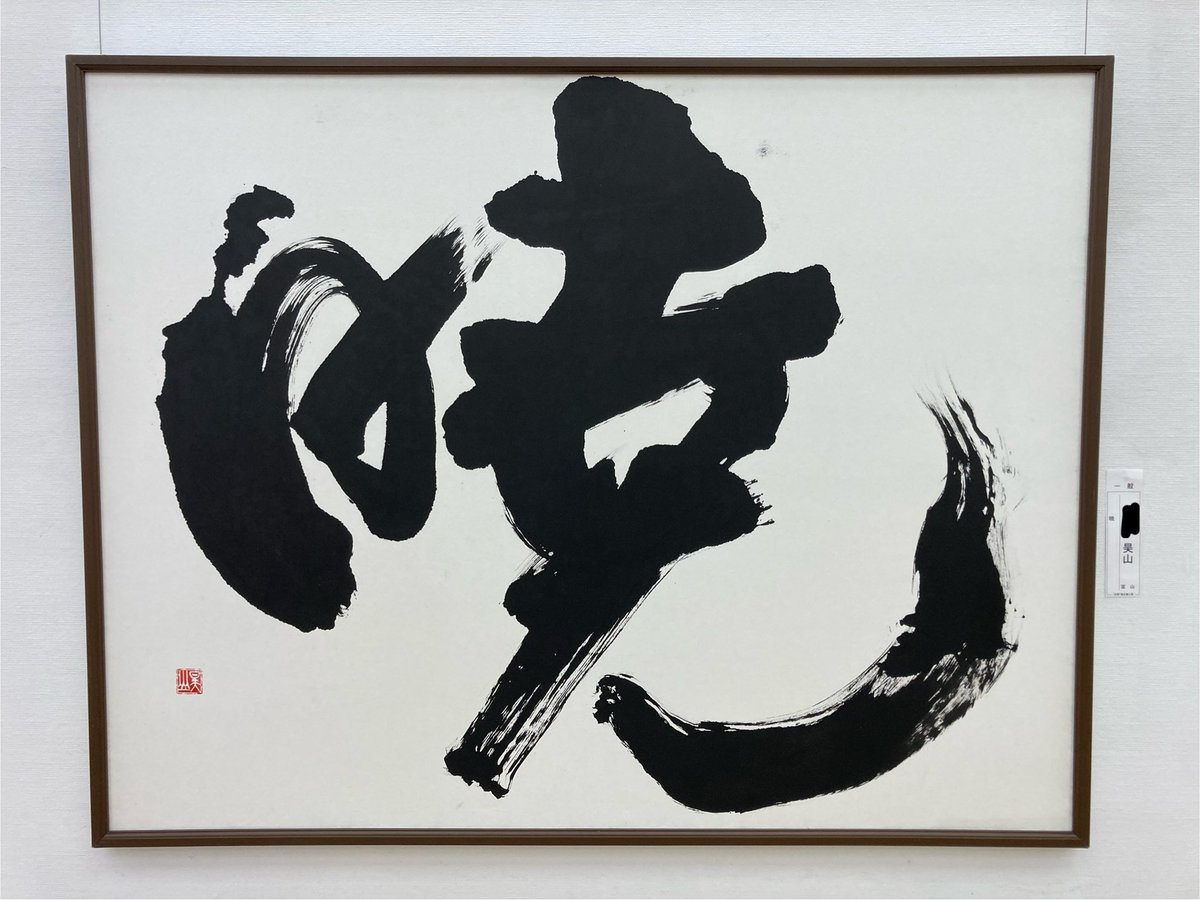 暁
昊山
一般
暁
昊山
富山